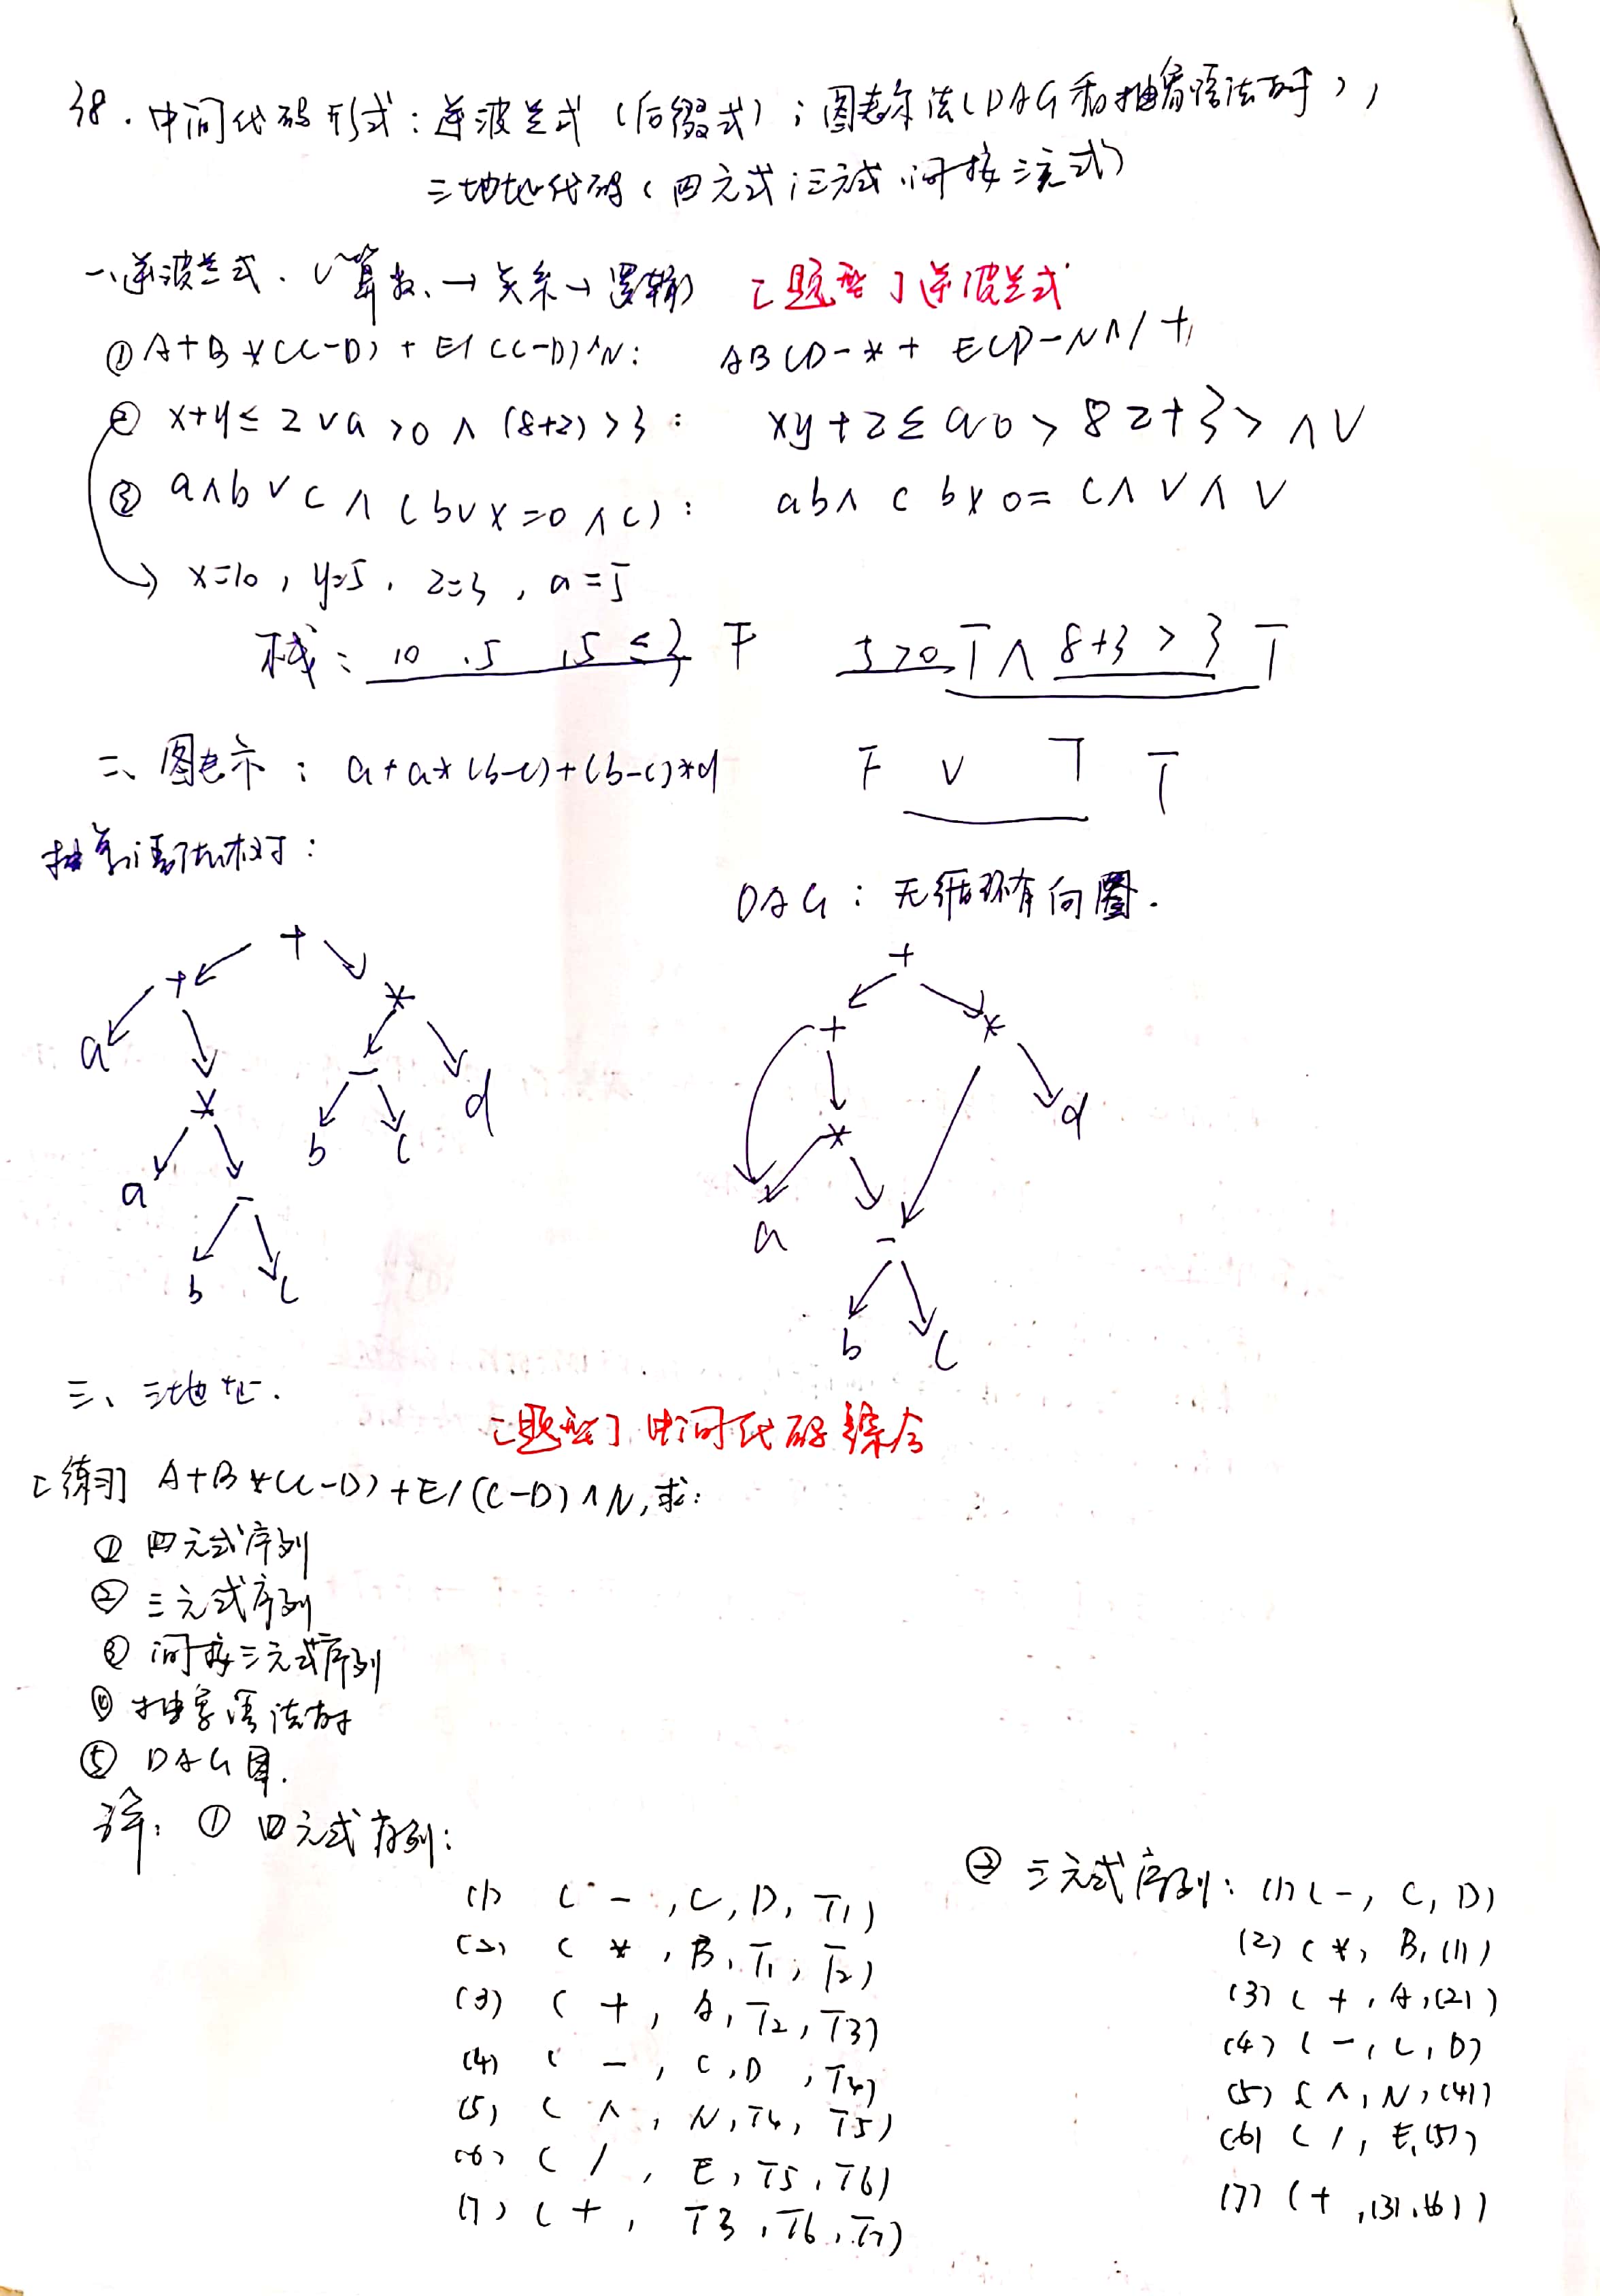 38.中间代码形式:逆波兰式(后缀式);图表示法(DAG和抽象语法树),
三地址代码(四元式;三元式、间接三元式)
一、逆波兰式.(算数、→关系→逻辑) [题型]逆波兰式
① A+B*(C-D)+E/(C-D)^N: ABCD-*+ECD-N^/+
② x+y≤z∨a>0∧(8+z)>3: xy+z≤a0>8z+3>∧∨
③ a∧b∨c∧(b∨x=0∧c): ab∧cbx0=c∧∨∧∨
x=10, y=5, z=3, a=5
栈: 10 .5 15≤3 F 5>0 T∧8+3>3 T
二、图表示: a+a*(b-c)+(b-c)*d F ∨ T T
抽象语法树:
DAG:无循环有向图.
+
+ *
a * - d
a - b c
b c
+
+ *
* d
a -
b c
三、三地址.
[题型]中间代码综合
[练习] A+B*(C-D)+E/(C-D)^N,求:
① 四元式序列
② 三元式序列
③ 间接三元式序列
④ 抽象语法树
⑤ DAG图.
解: ① 四元式序列:
(1) (-,C,D,T1)
(2) (*,B,T1,T2)
(3) (+,A,T2,T3)
(4) (-,C,D,T4)
(5) (^,N,T4,T5)
(6) (/,E,T5,T6)
(7) (+,T3,T6,T7)
② 三元式序列: (1) (-,C,D)
(2) (*,B,(1))
(3) (+,A,(2))
(4) (-,C,D)
(5) (^,N,(4))
(6) (/,E,(5))
(7) (+,(3),(6))